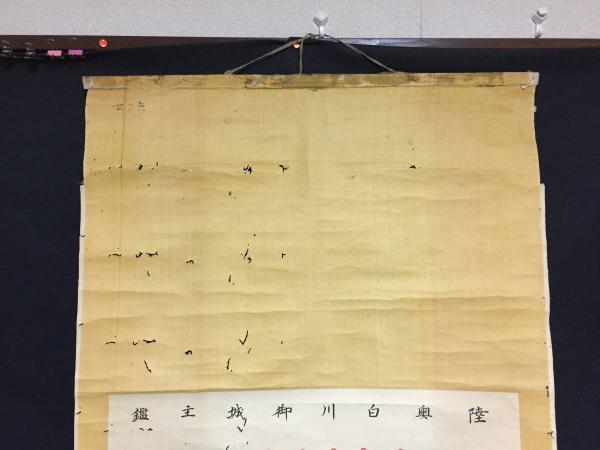 陸奥白川御城主鑑